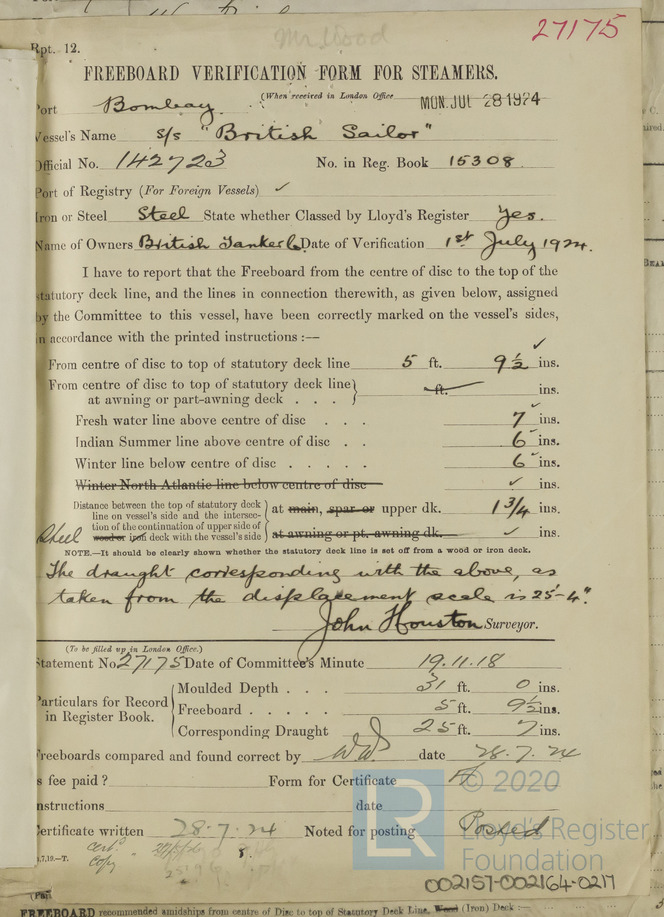 Mr. Wood
27175
Rpt. 12.
FREEBOARD VERIFICATION FORM FOR STEAMERS.
(When received in London Office MON. JUL 28 1924
Port Bombay
Vessel's Name s/s "British Sailor"
Official No. 142723 No. in Reg. Book 15308
Port of Registry (For Foreign Vessels) ✓
Iron or Steel Steel State whether Classed by Lloyd's Register Yes.
Name of Owners British Tanker Co Date of Verification 1st July 1924.
I have to report that the Freeboard from the centre of disc to the top of the
statutory deck line, and the lines in connection therewith, as given below, assigned
by the Committee to this vessel, have been correctly marked on the vessel's sides,
in accordance with the printed instructions :—
From centre of disc to top of statutory deck line 5 ft. 9½ ins.
From centre of disc to top of statutory deck line
at awning or part-awning deck . . . ft. ins.
Fresh water line above centre of disc . . . 7 ins.
Indian Summer line above centre of disc . . 6 ins.
Winter line below centre of disc . . . . . 6 ins.
Winter North Atlantic line below centre of disc ✓ ins.
Distance between the top of statutory deck
line on vessel's side and the intersec-
tion of the continuation of upper side of
Steel wood or iron deck with the vessel's side
at main, spar or upper dk. 1 3/4 ins.
at awning or pt. awning dk. ✓ ins.
NOTE.—It should be clearly shown whether the statutory deck line is set off from a wood or iron deck.
The draught corresponding with the above, as
taken from the displacement scale is 25'-4".
John Houston Surveyor.
(To be filled up in London Office.)
Statement No. 27175 Date of Committee's Minute 19.11.18
Particulars for Record
in Register Book.
Moulded Depth . . . 31 ft. 0 ins.
Freeboard . . . . . 5 ft. 9½ ins.
Corresponding Draught 25 ft. 7 ins.
Freeboards compared and found correct by date 28.7.24
Is fee paid? Form for Certificate A
Instructions date
Certificate written 28.7.24 Noted for posting Posted
cert.
copy
,7,19.—T.
© 2020
LR
Lloyd's Register
Foundation
002157-002164-0217
FREEBOARD recommended amidships from centre of Disc to top of Statutory Deck Line, Wood (Iron) Deck :—